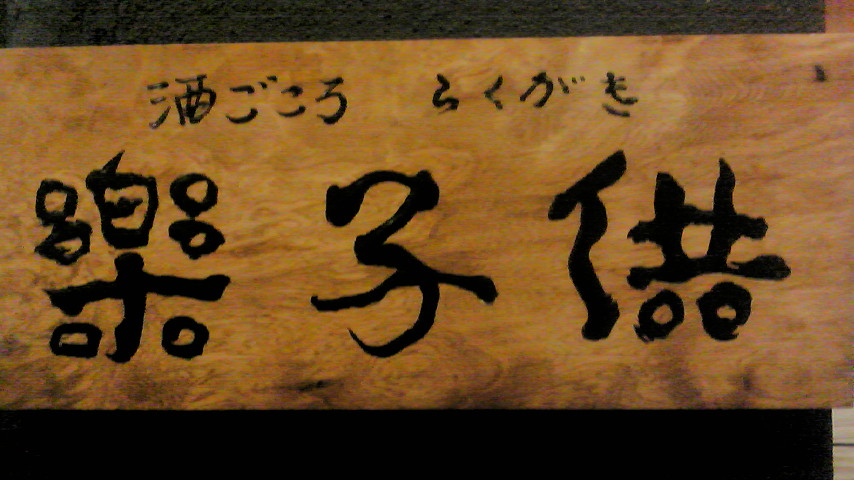 酒ごころ　らくがき
樂子供